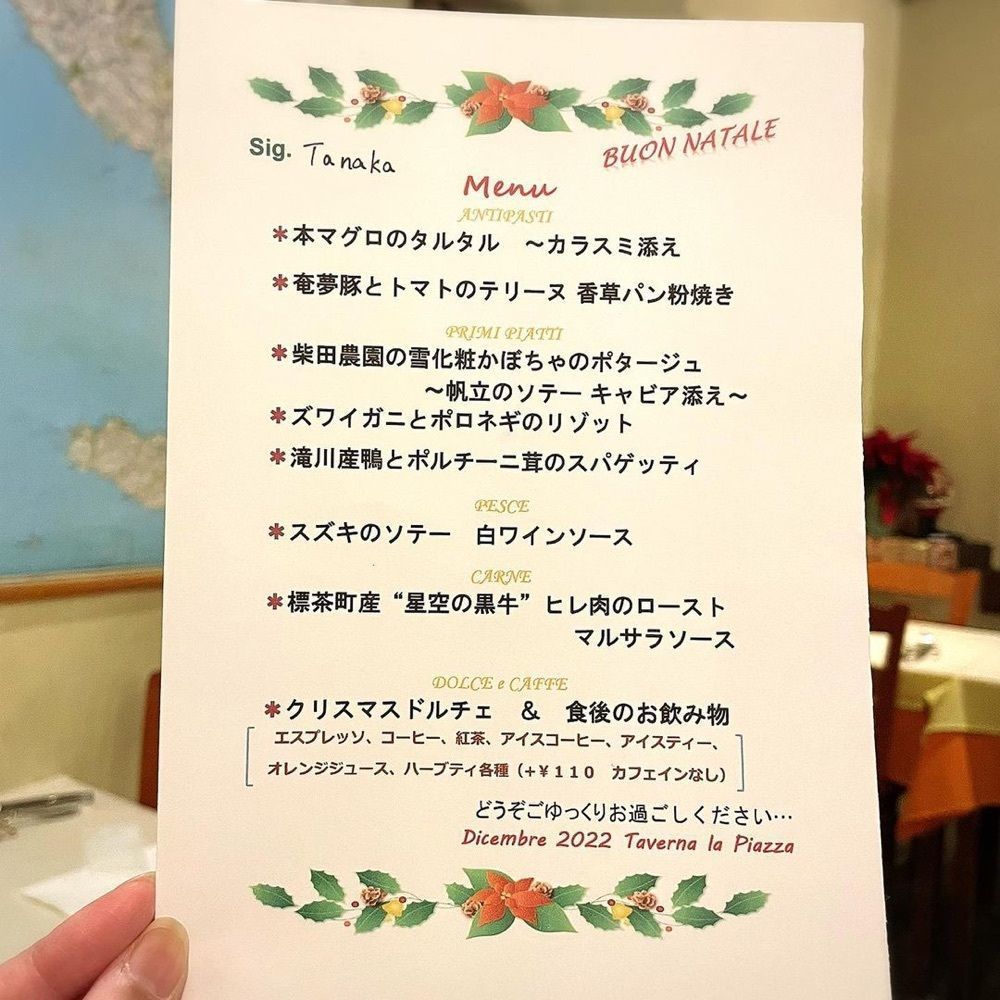 Sig. Tanaka
BUON NATALE
Menu
ANTIPASTI
*本マグロのタルタル ～カラスミ添え
*奄夢豚とトマトのテリーヌ 香草パン粉焼き
PRIMI PIATTI
*柴田農園の雪化粧かぼちゃのポタージュ
～帆立のソテー キャビア添え～
*ズワイガニとポロネギのリゾット
*滝川産鴨とポルチーニ茸のスパゲッティ
PESCE
*スズキのソテー 白ワインソース
CARNE
*標茶町産“星空の黒牛”ヒレ肉のロースト
マルサラソース
DOLCE e CAFFE
*クリスマスドルチェ ＆ 食後のお飲み物
エスプレッソ、コーヒー、紅茶、アイスコーヒー、アイスティー、
オレンジジュース、ハーブティ各種（+￥１１０ カフェインなし）
どうぞごゆっくりお過ごしください…
Dicembre 2022 Taverna la Piazza